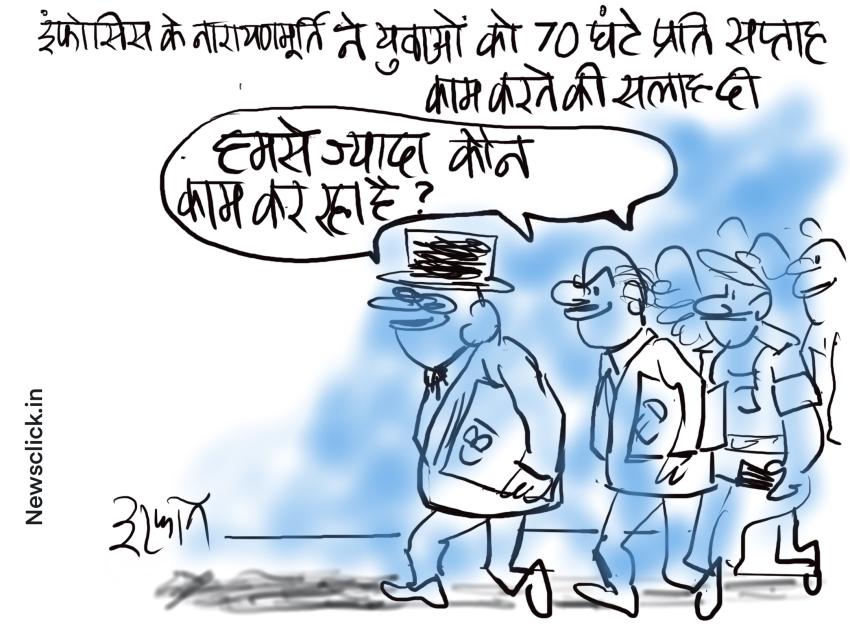 इंफोसिस के नारायणमूर्ति ने युवाओं को 70 घंटे प्रति सप्ताह
काम करने की सलाह दी
हमसे ज्यादा कौन
काम कर रहा है ?
CBI
ED
Newsclick.in
इरफान